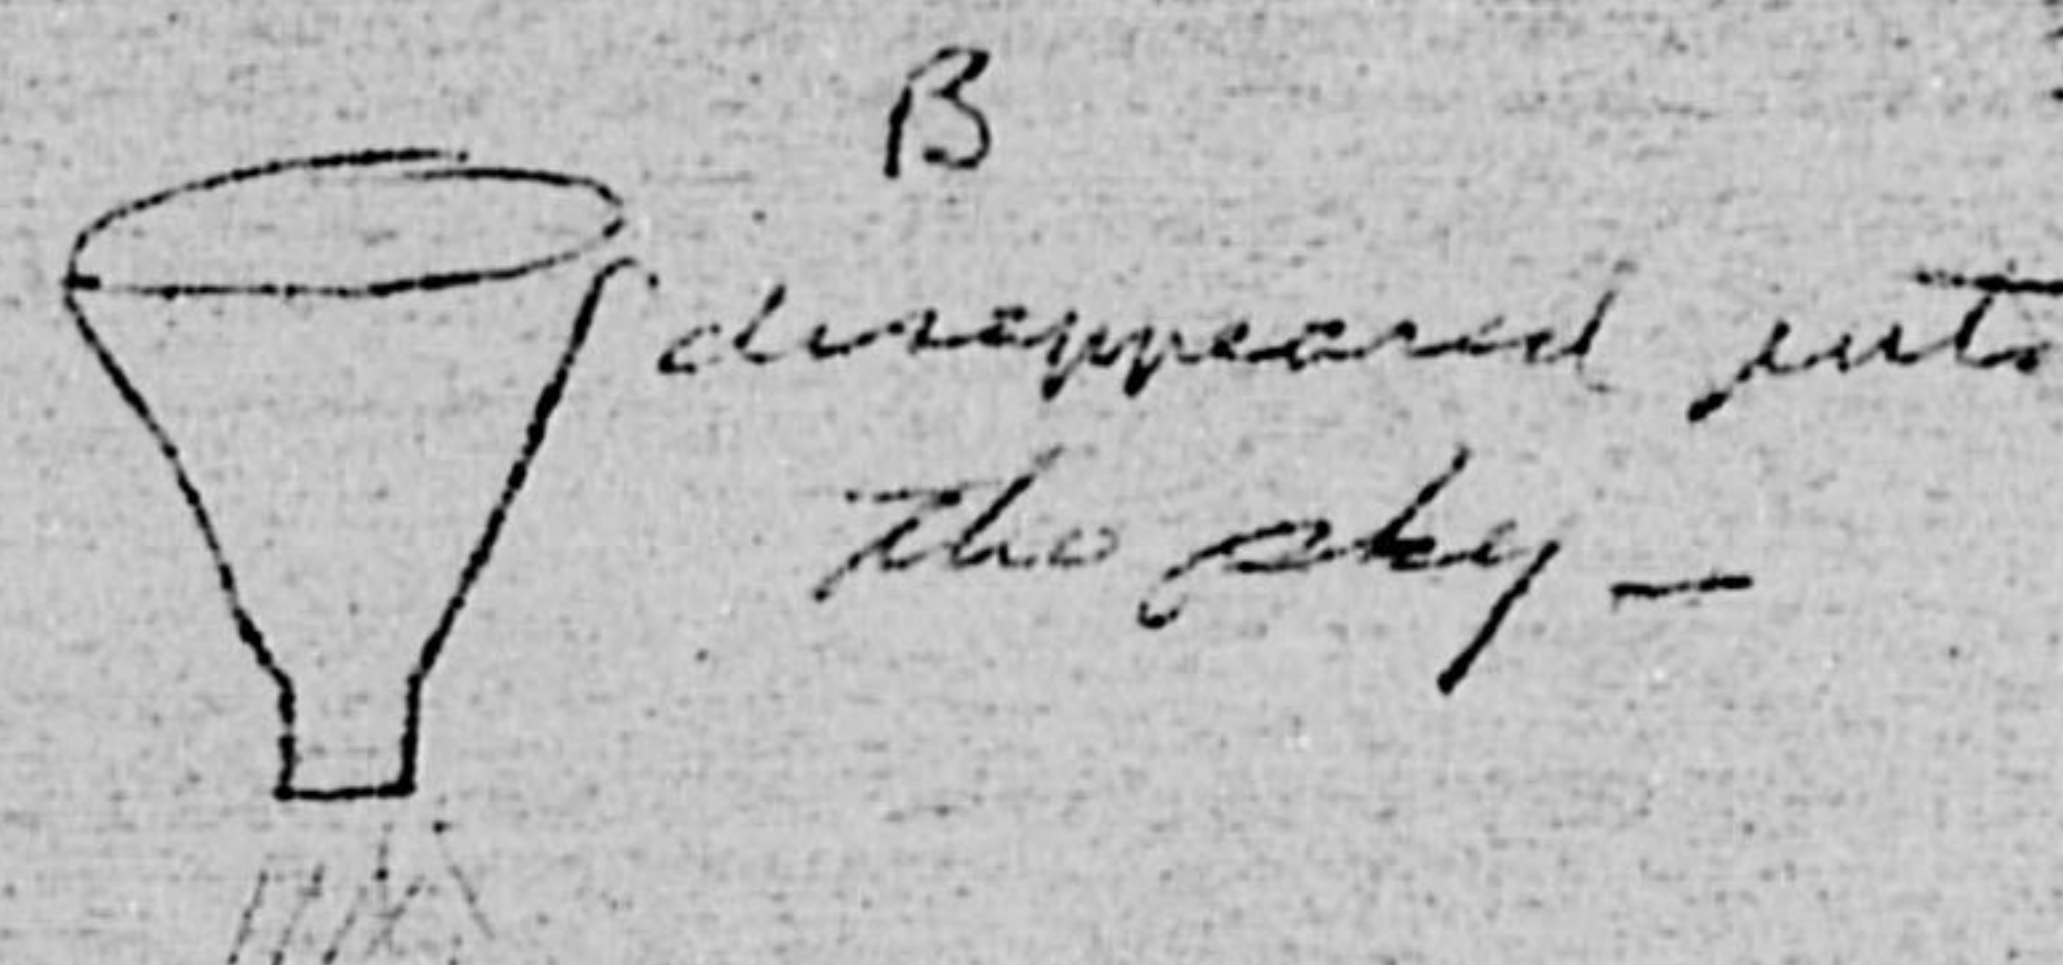 B
disappeared into
the sky —